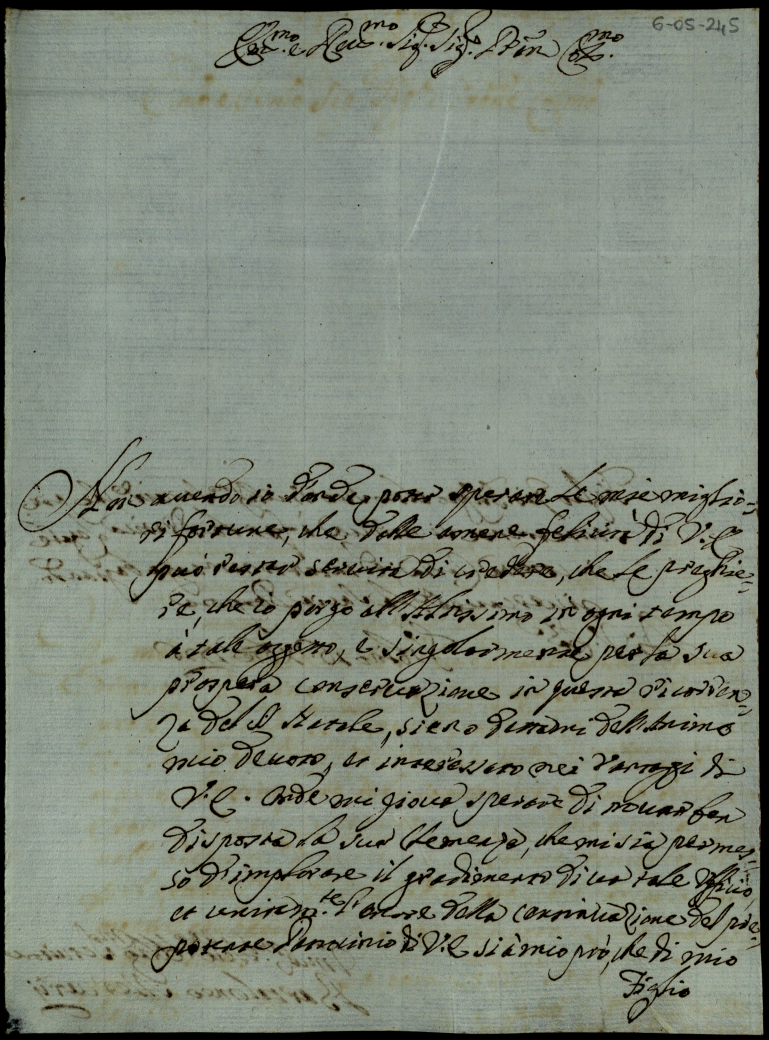 6-05-245
Ecc.mo e Rev.mo Sig.r Sig.r P'ron Col.mo
Non avendo io d'onde poter sperare le mie miglio-
ri fortune, che dalle amene felicità di V.E.
può restar servita di credere, che le preghie-
re, che io porgo all'Altissimo in ogni tempo
à tale oggetto, e singolarmente per la sua
prospera conservazione in questa ricorren-
za del S. Natale, sieno dettami dell'Animo
mio devoto, et interessato nei vantaggi di
V.E. Onde mi giova sperare di trovar ben
disposta la sua Clemenza, che mi sia permes-
so d'implorare il gradimento di un tale Ufficio,
et unitam.te l'onore della continuazione del pre-
potente Patrocinio di V.E. sì à mio prò, che di mio
Figlio